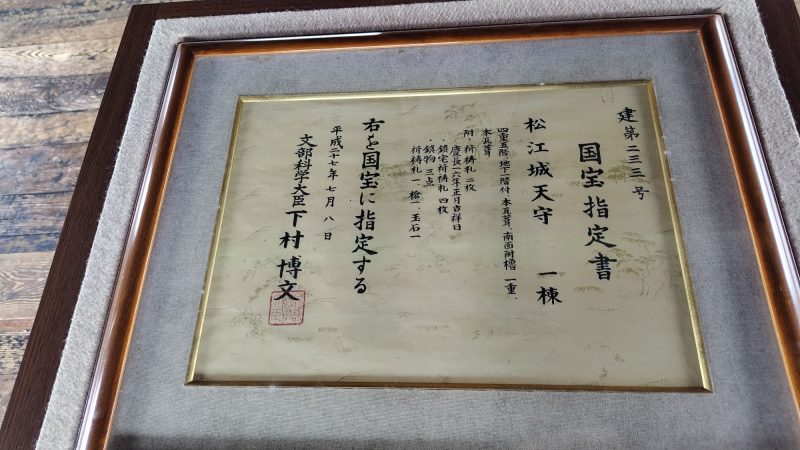 建第二三三号
国宝指定書
松江城天守 一棟
四重五階地下一階付、本瓦葺、南面附櫓 一重、
本瓦葺
附・祈祷札 二枚
慶長一六年正月吉祥日
・鎮宅祈祷札 四枚
・鎮物 三点
祈祷札一 槍一 玉石一
右を国宝に指定する
平成二十七年七月八日
文部科学大臣 下村博文